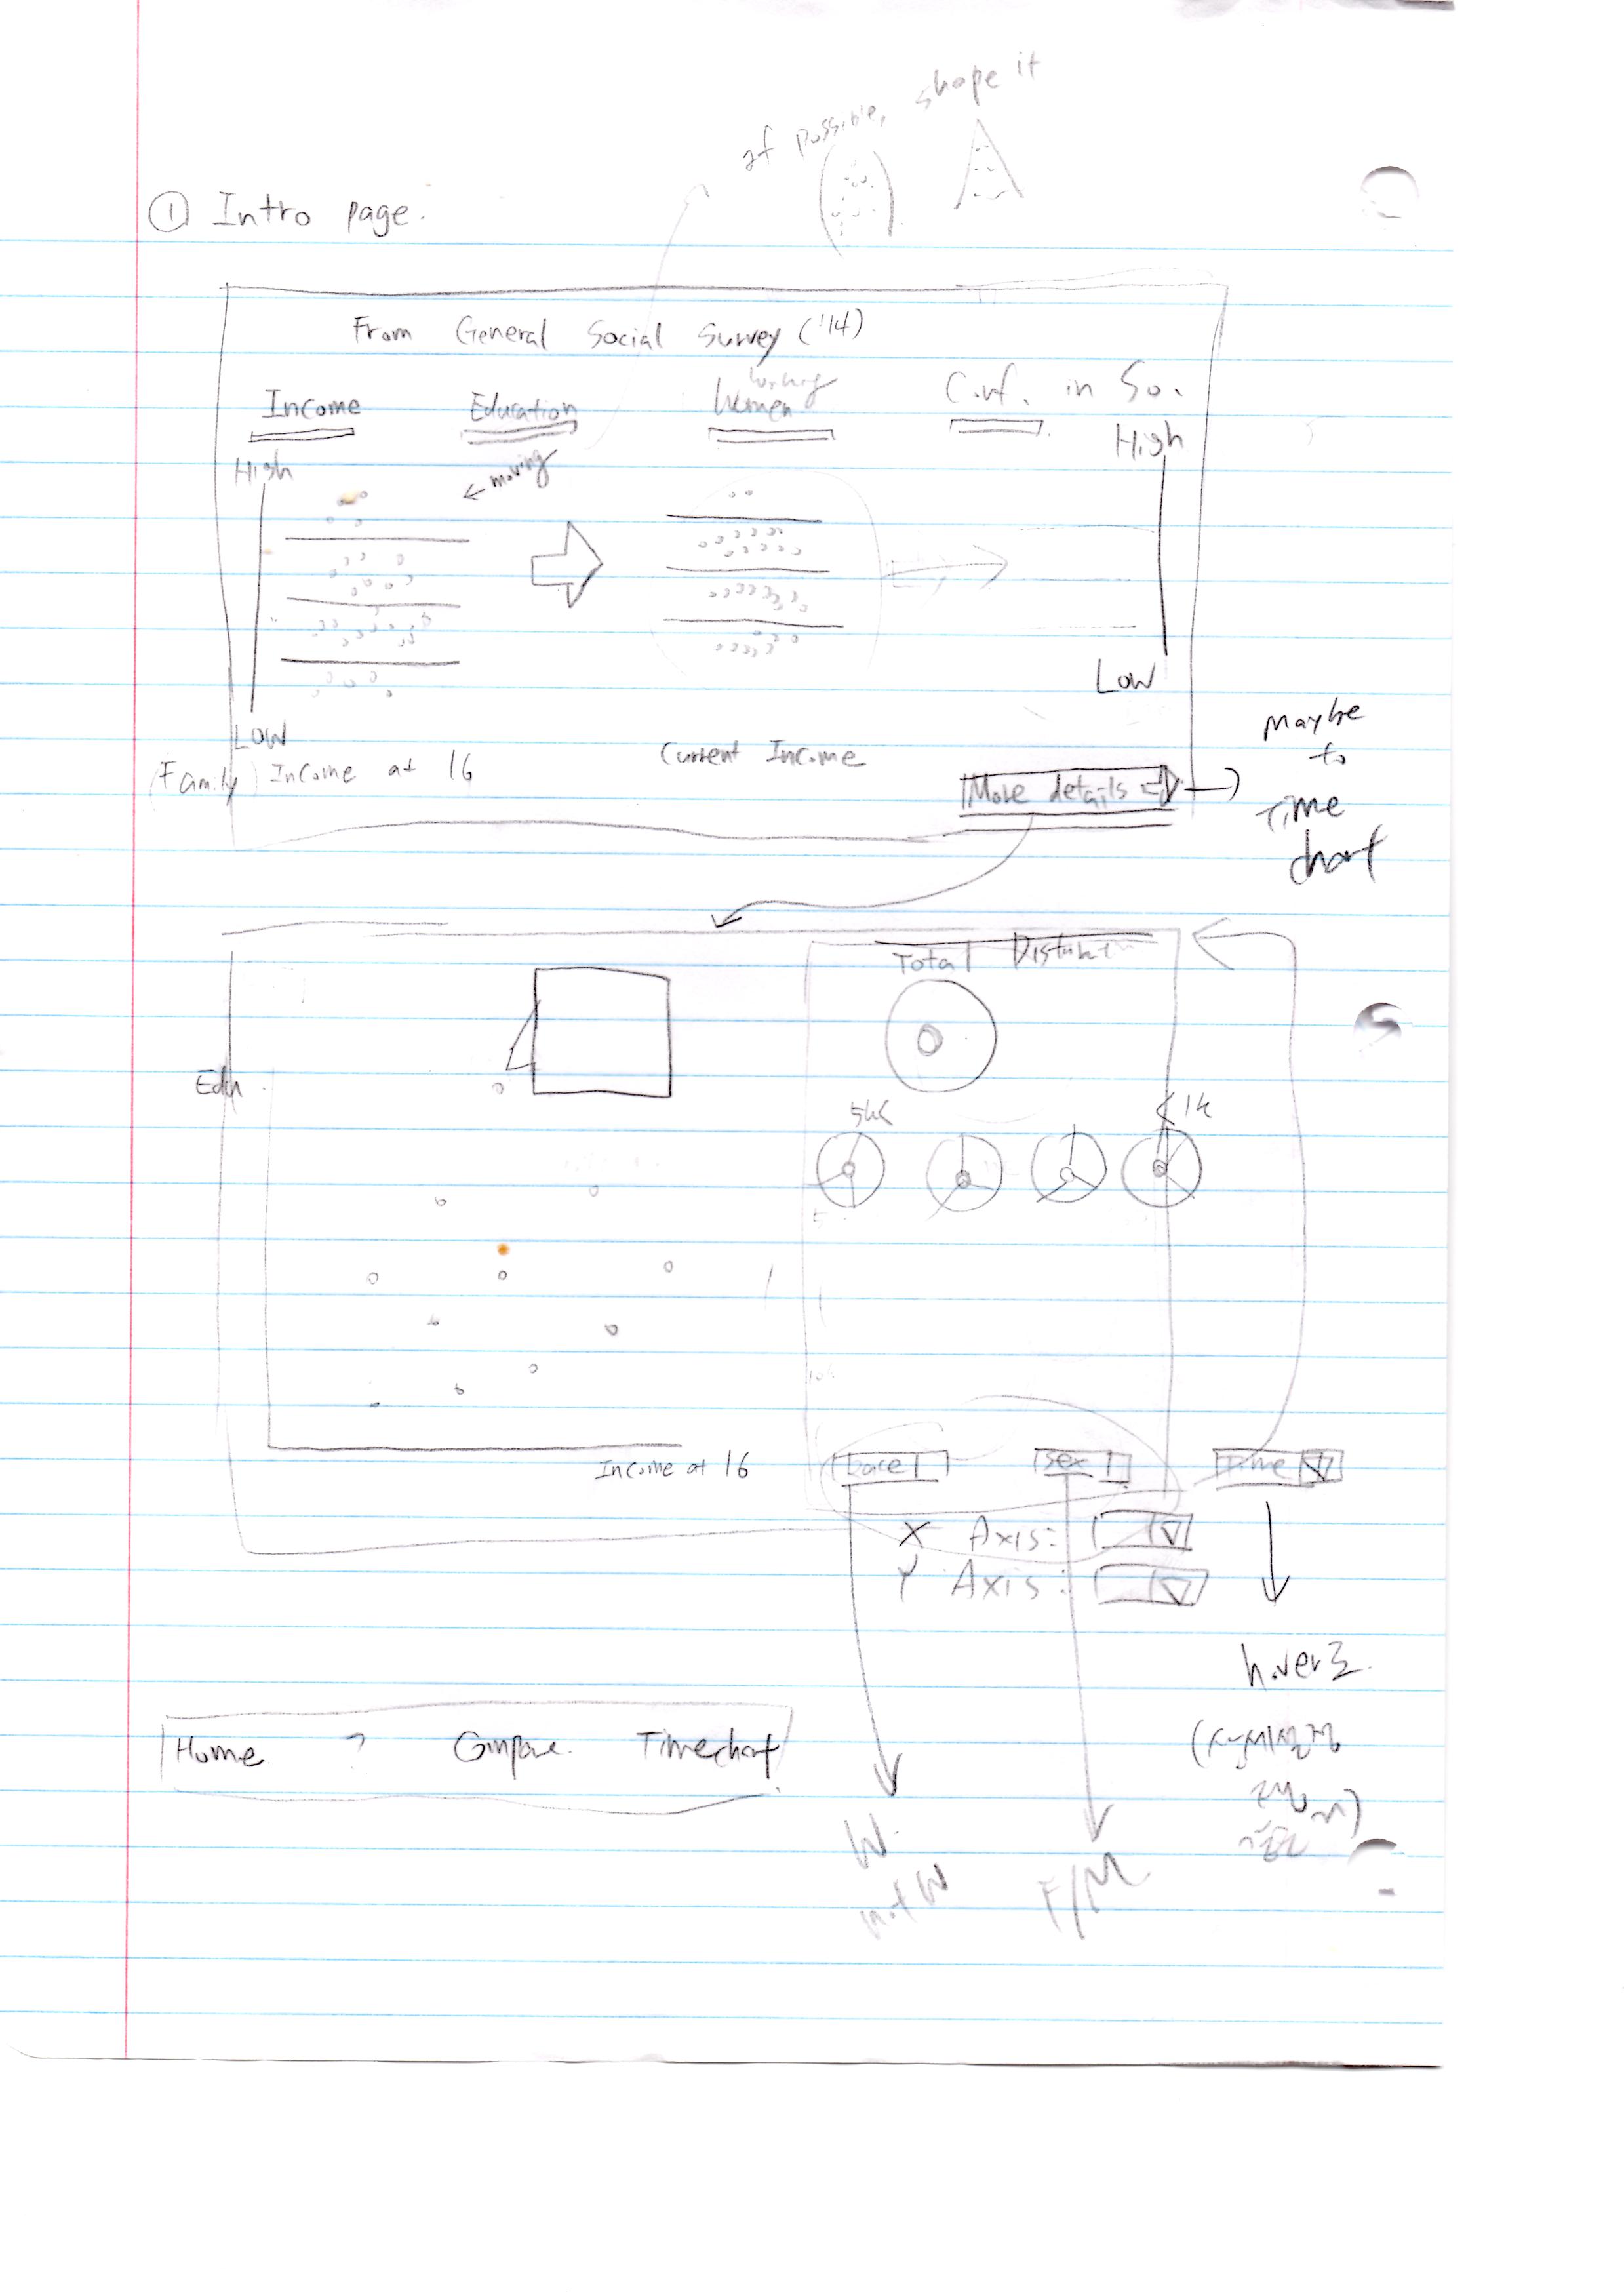 if possible, shape it
① Intro page.
From General Social Survey ('14)
Income Education Working Women Conf. in So.
High High
← moving
Low
Low
(Family) Income at 16 Current Income
More details ⇒
Maybe
to
Time
chart
Total
Edu.
5k< <1k
Income at 16
Race Sex Time
X Axis:
Y Axis:
hover로
Home ? Compare Timechart
W
not W
F/M